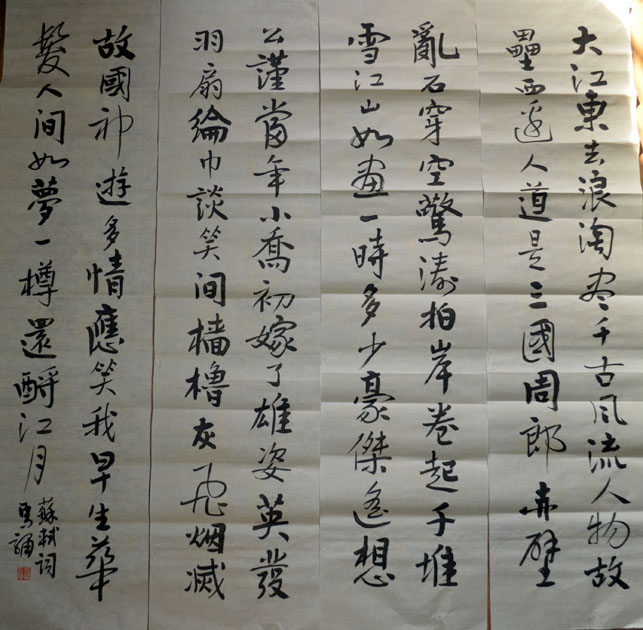 大江東去浪淘尽千古風流人物故
壘西邊人道是三國周郎赤壁
亂石穿空驚濤拍岸卷起千堆
雪江山如畫一時多少豪傑遙想
公謹當年小喬初嫁了雄姿英發
羽扇綸巾談笑间檣櫓灰飛烟滅
故國神遊多情應笑我早生華
髮人间如夢一樽還酹江月
蘇軾詞